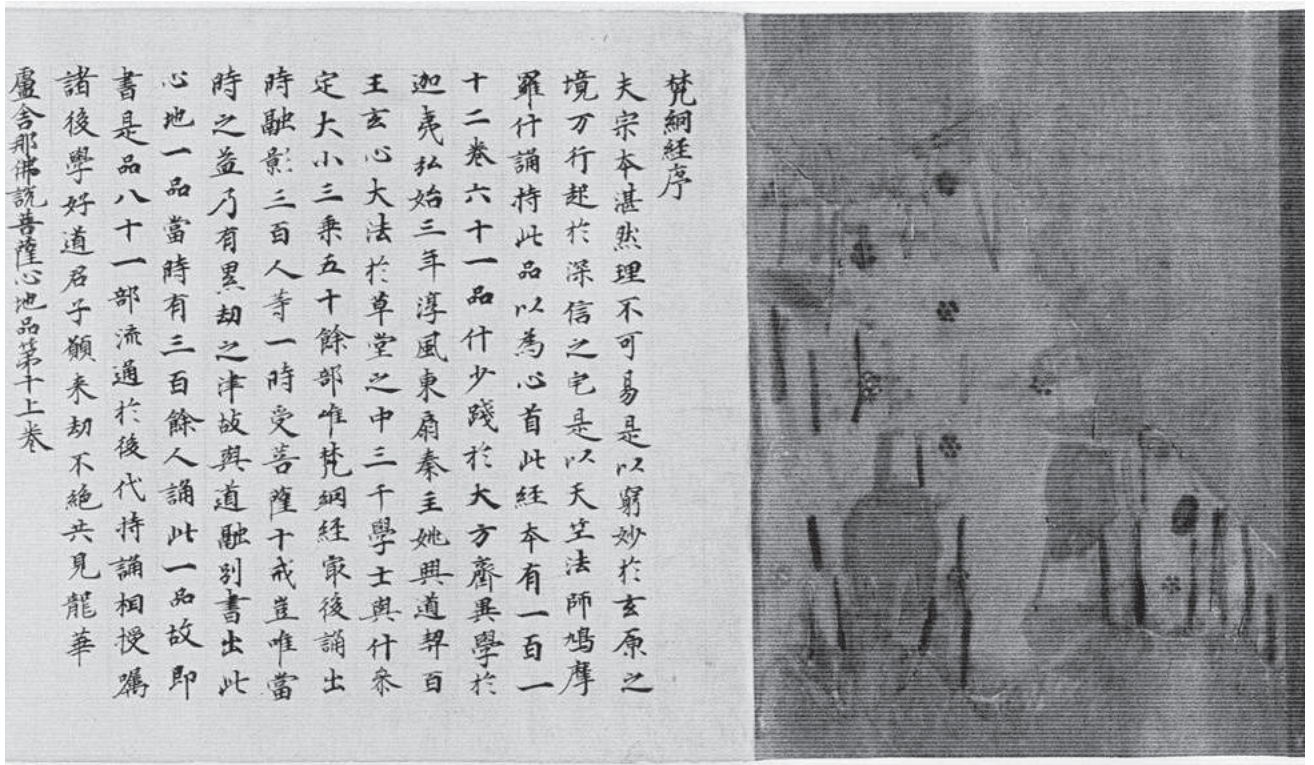 梵網経序
夫宗本湛然理不可易是以窮妙於玄原之
境万行起於深信之宅是以天笁法師鳩摩
羅什誦持此品以為心首此経本有一百一
十二巻六十一品什少踐於大方齋異學於
迦夷弘始三年淳風東扇秦主姚興道契百
王玄心大法於草堂之中三千學士與什叅
定大小三乗五十餘部唯梵網経㝡後誦出
時融影三百人等一時受菩薩十戒豈唯當
時之益乃有異劫之津故與道融別書出此
心地一品當時有三百餘人誦此一品故即
書是品八十一部流通於後代持誦相授囑
諸後學好道君子願来劫不絶共見龍華
盧舎那佛説菩薩心地品第十上巻